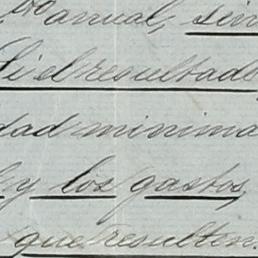 anual, sin
Si el resultado
dad minima
y los gastos,
que resulten.